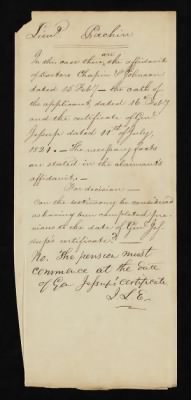 Lieut. Pachin
are
In this case there, the affidavit
of Doctors Chapin & Johnson
dated 15 Feby — the oath of
the applicant, dated 16 Feby
and the certificate of Genl
Jesup dated 11th of July,
1821. — The necessary facts
are stated in the claimant's
affidavit. —
For decision —
Can the testimony be considered
as having been completed pre-
vious to the date of Genl Jes-
sup's certificate? —
No. The pension must
commence at the date
of Gen Jesup's certificate
J L E.